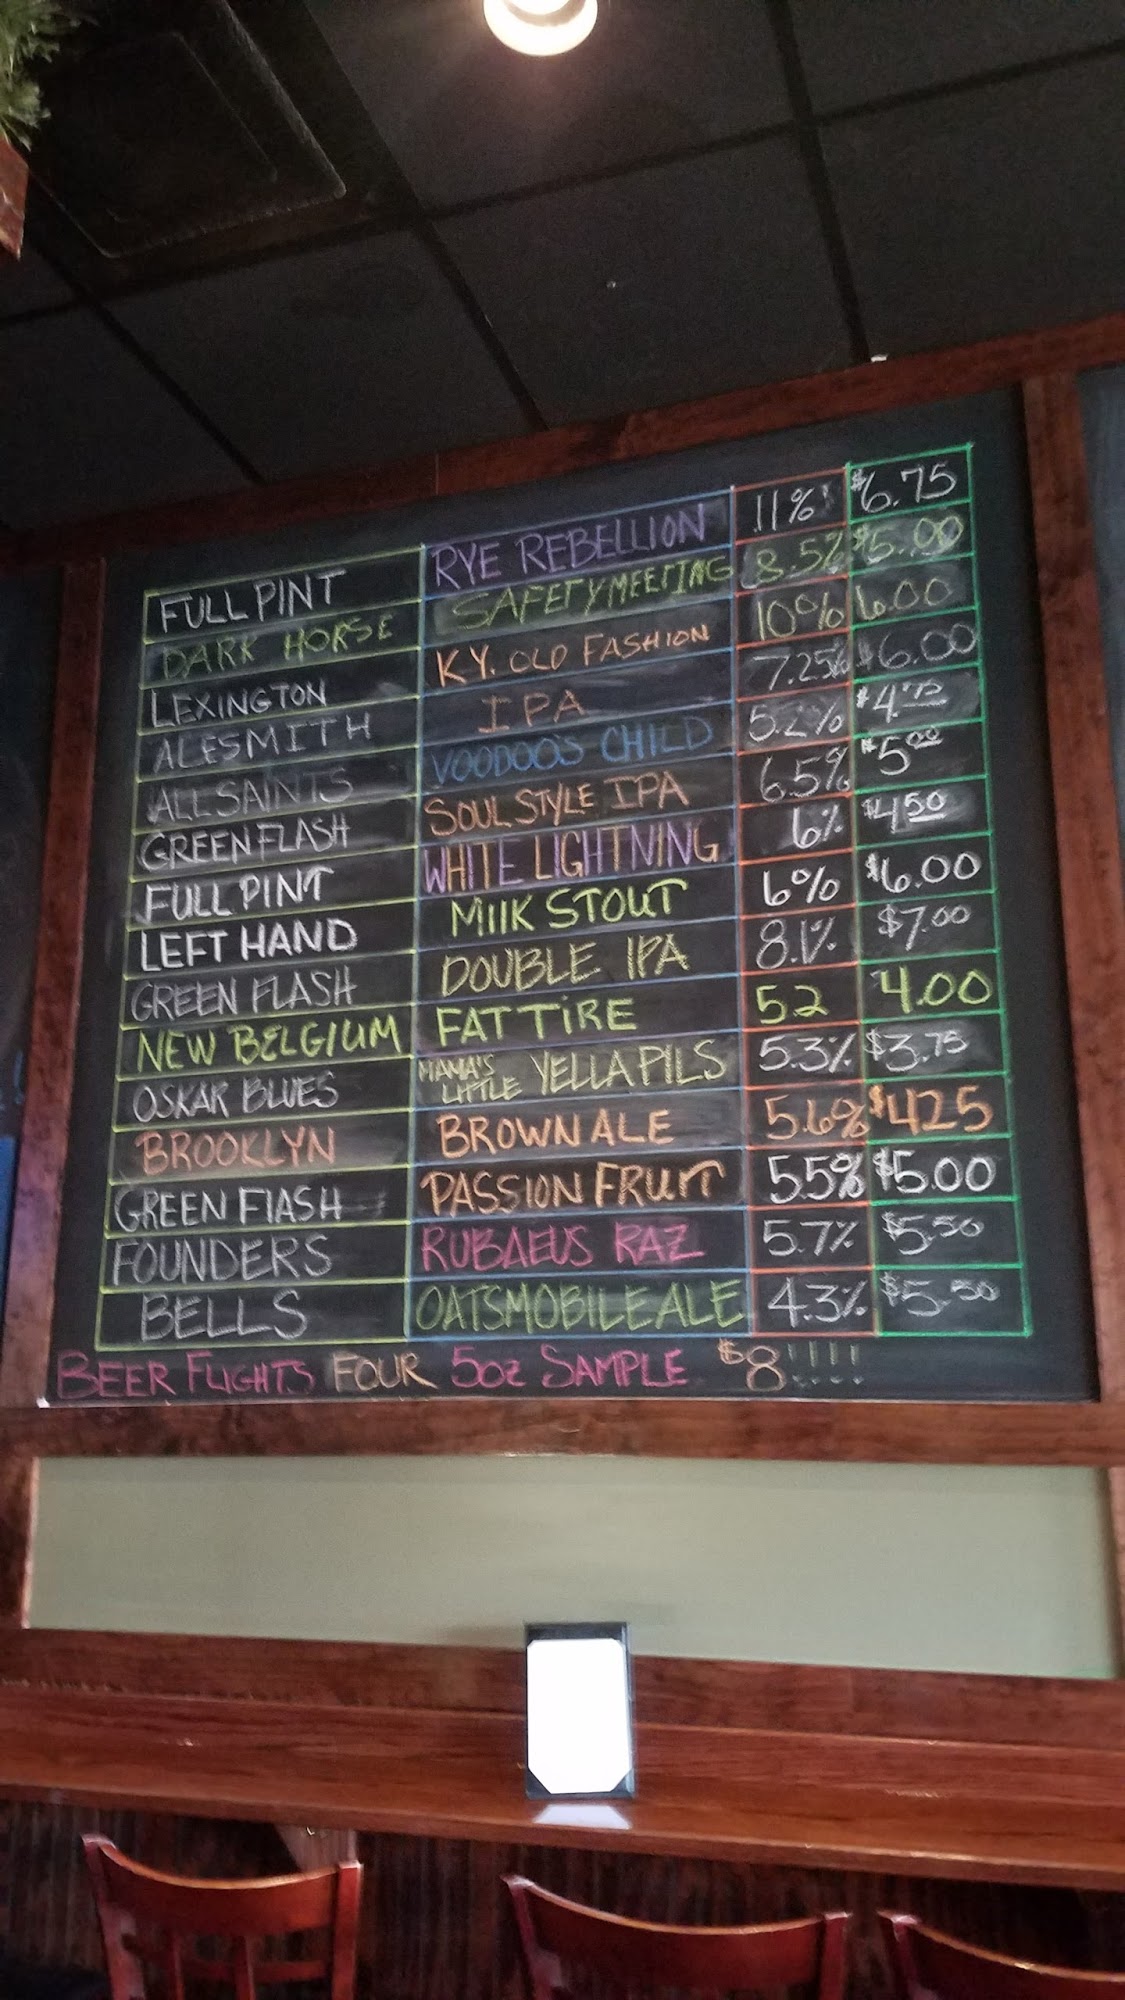 FULL PINT RYE REBELLION 11% $6.75
DARK HORSE SAFETY MEETING 8.5% $5.00
LEXINGTON KY. OLD FASHION 10% 6.00
ALESMITH IPA 7.25% $6.00
ALL SAINTS VOODOO'S CHILD 5.2% $4.75
GREEN FLASH SOUL STYLE IPA 6.5% $5.00
FULL PINT WHITE LIGHTNING 6% $4.50
LEFT HAND MIlK STOUT 6% $6.00
GREEN FLASH DOUBLE IPA 8.1% $7.00
NEW BELGIUM FAT TiRE 5.2 4.00
OSKAR BLUES MAMA'S LITTLE YELLA PILS 5.3% $3.75
BROOKLYN BROWN ALE 5.6% $425
GREEN FlASH PASSION FRUIT 5.5% $5.00
FOUNDERS RUBAEUS RAZ 5.7% $5.50
BELLS OATSMOBILE ALE 4.3% $5.50
BEER FLIGHTS FOUR 5oz SAMPLE $8!!!!